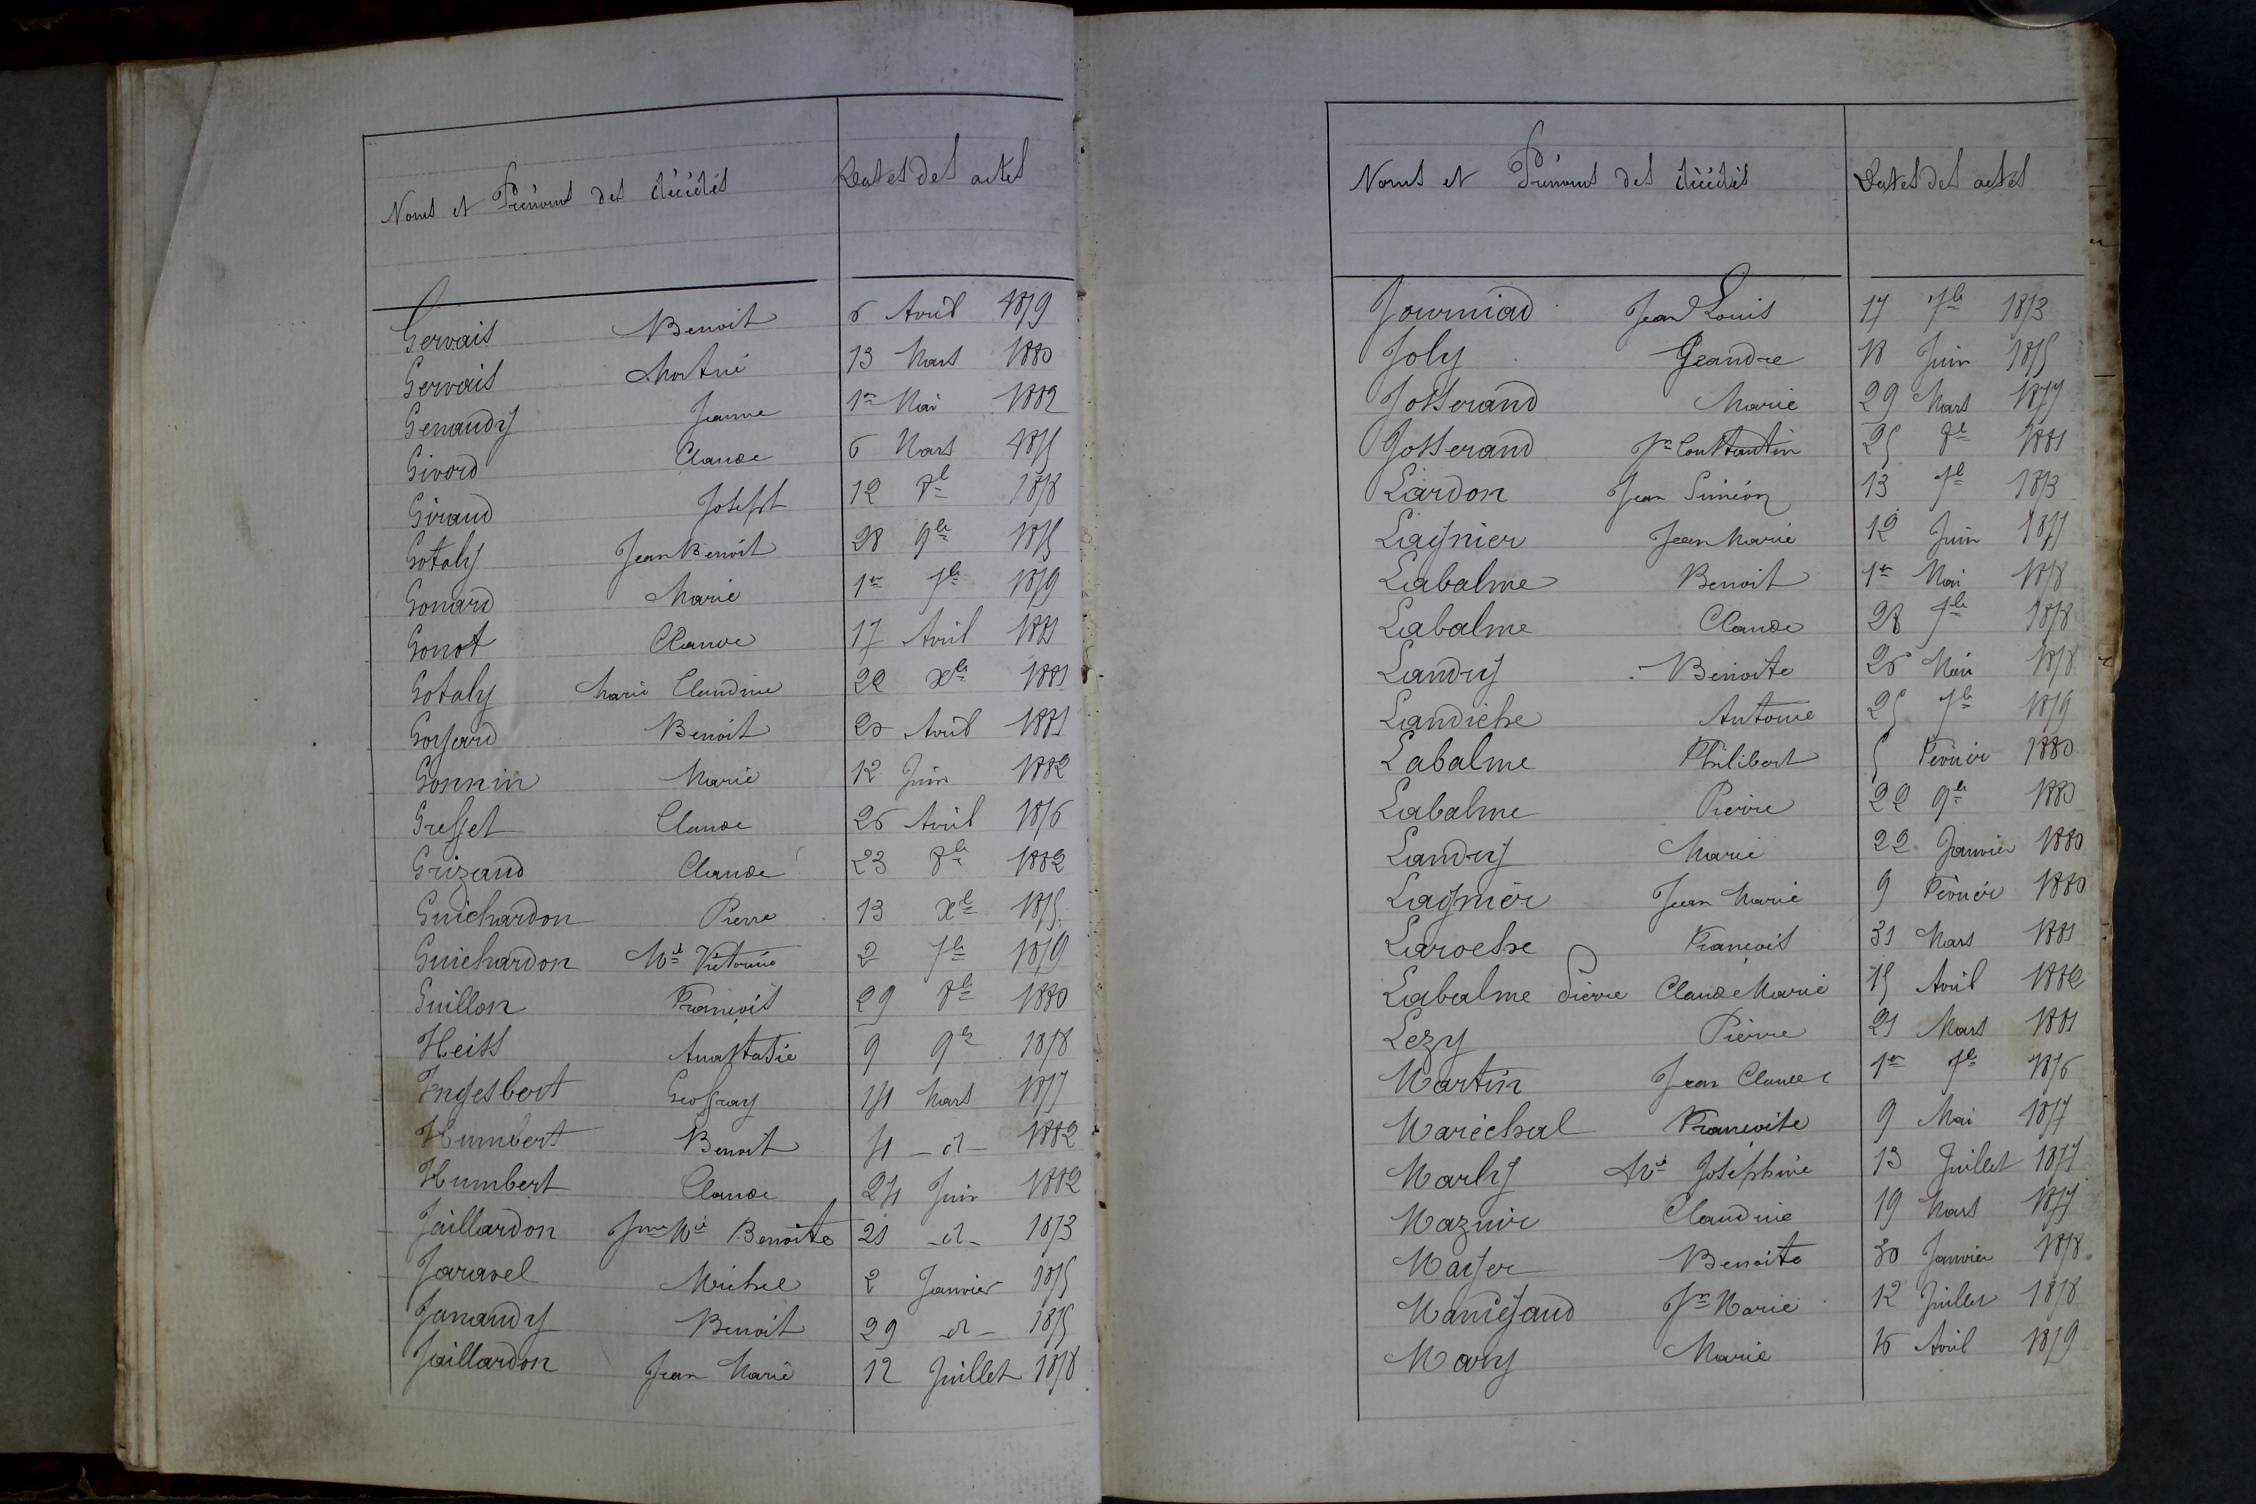 Noms et Prénoms des décédés Dates des actes
Gervais Benoit 6 Avril 1879
Gervais Mort né 13 Mars 1880
Genaudy Jeanne 1er Mai 1882
Givord Claude 6 Mars 1875
Giraud Joseph 12 8e 1878
Gotaly Jean Benoit 28 9bre 1875
Gonard Marie 1er 7bre 1879
Gonot Claude 17 Avril 1881
Gotaly Marie Claudine 22 Xbre 1881
Goyard Benoit 20 Avril 1881
Gonnin Marie 12 Juin 1882
Greffet Claude 26 Avril 1876
Grizaud Claude 23 8bre 1882
Guichardon Pierre 13 Xbre 1875
Guichardon Mie Victorine 2 7bre 1879
Guillon François 29 8bre 1880
Heiss Anastasie 9 9bre 1878
Ingesbert Geoffray 14 Mars 1877
Humbert Benoit 4 -d- 1882
Humbert Claude 24 Juin 1882
Jaillardon Jnne Mie Benoite 21 -d- 1873
Jaravel Michel 2 Janvier 1875
Janaudy Benoit 29 -d- 1875
Jaillardon Jean Marie 12 Juillet 1878
Noms et Prénoms des décédés Dates des actes
Journiad Jean Louis 17 7bre 1873
Joly Jeandre 18 Juin 1875
Josserand Marie 29 Mars 1877
Josserand Jn Constantin 25 8e 1881
Lardon Jean Siméon 13 7e 1873
Lagnier Jean Marie 12 Juin 1877
Labalme Benoit 1er Mai 1878
Labalme Claude 28 7bre 1878
Landry Benoite 26 Mai 1878
Landiche Antoine 25 7bre 1879
Labalme Philibert 5 Février 1880
Labalme Pierre 22 9bre 1880
Landry Marie 22 Janvier 1880
Lagnier Jean Marie 9 Février 1880
Laroche François 31 Mars 1881
Labalme Pierre Claude Marie 15 Avril 1882
Lezy Pierre 21 Mars 1881
Martin Jean Claude 1er 7e 1876
Maréchal Francoise 9 Mai 1877
Marly Mie Joséphine 13 Juillet 1877
Maznir Claudine 19 Mars 1877
Mayer Benoite 30 Janvier 1878
Manigaud Jn Marie 12 Juillet 1878
Mary Marie 16 Avril 1879